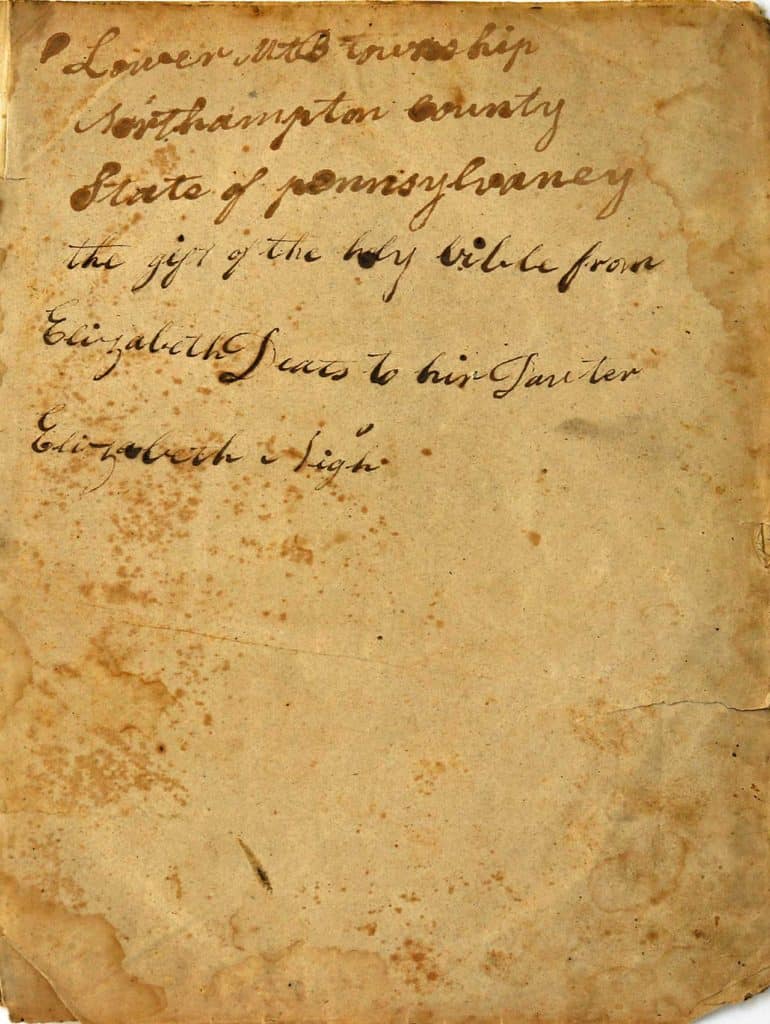 Lower MtB township
Northampton County
State of pennsylvaney
the gift of the holy bible from
Elizabeth Deats to hir Dauter
Elizabeth Nigh